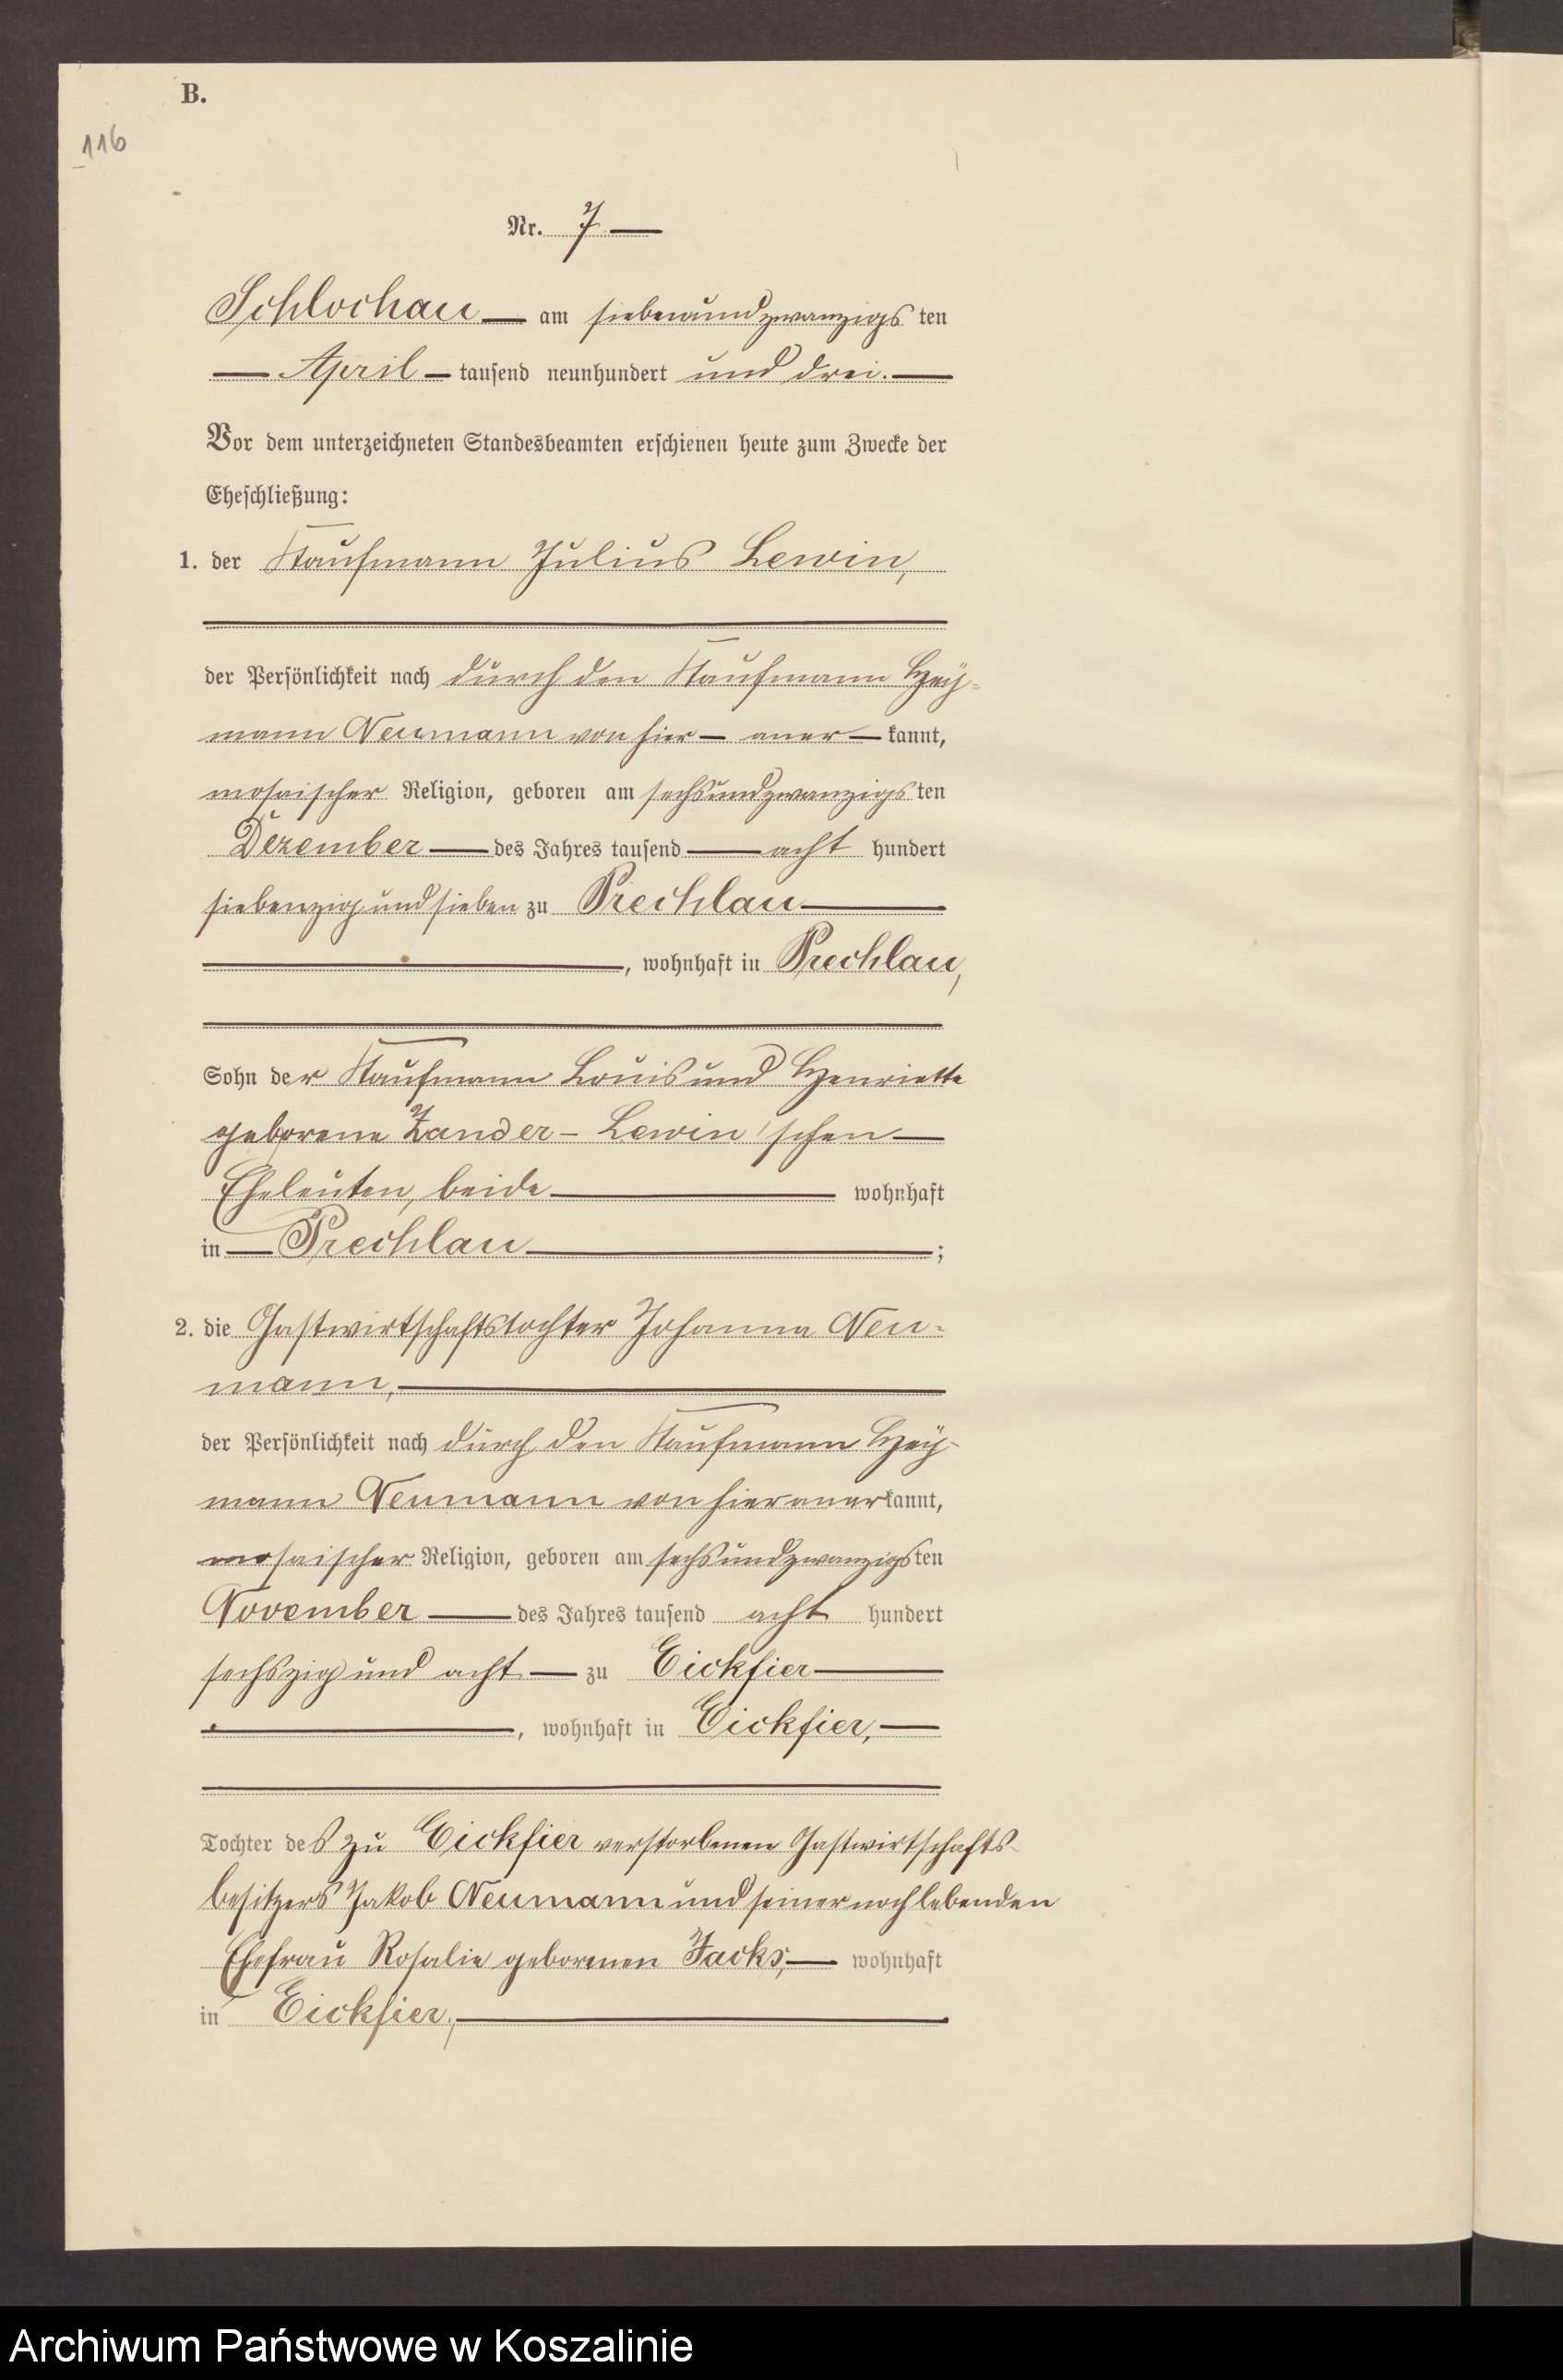 B.
116
Nr. 7
Schlochau am siebenundzwanzigs ten
April tausend neunhundert und drei.
Vor dem unterzeichneten Standesbeamten erschienen heute zum Zwecke der
Eheschließung:
1. der Kaufmann Julius Lewin,
der Persönlichkeit nach durch den Kaufmann Hey=
mann Neumann von hier — aner — kannt,
mosaischer Religion, geboren am sechsundzwanzigs ten
Dezember des Jahres tausend acht hundert
siebenzig und sieben zu Prechlau
, wohnhaft in Prechlau,
Sohn der Kaufmann Louis und Henriette
geborene Zander - Lewin'schen
Eheleuten, beide wohnhaft
in Prechlau ;
2. die Gastwirtschaftstochter Johanna Neu=
mann,
der Persönlichkeit nach durch den Kaufmann Hey-
mann Neumann von hier anerkannt,
mosaischer Religion, geboren am sechsundzwanzigsten
November des Jahres tausend acht hundert
sechszig und acht zu Eickfier
, wohnhaft in Eickfier,
Tochter des zu Eickfier verstorbenen Gastwirtschafts-
besitzers Jakob Neumann und seiner noch lebenden
Ehefrau Rosalie geborenen Jacks, wohnhaft
in Eickfier,
Archiwum Państwowe w Koszalinie